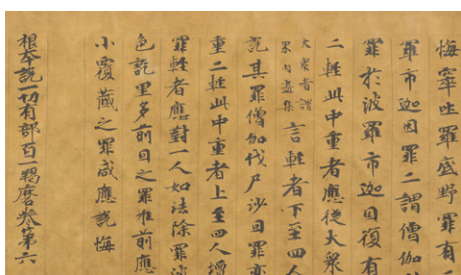 悔窣吐羅底野罪有
羅市迦因罪二謂僧伽
罪於波羅市迦因復有
二輕此中重者應從大衆
大衆者謂
界內盡集
言輕者下至四人
說其罪僧伽伐尸沙因罪亦
重二輕此中重者上至四人壇
罪輕者應對一人如法除罪波
色訖里多前因之罪准前應
小覆藏之罪咸應說悔
根本說一切有部百一羯磨卷第六